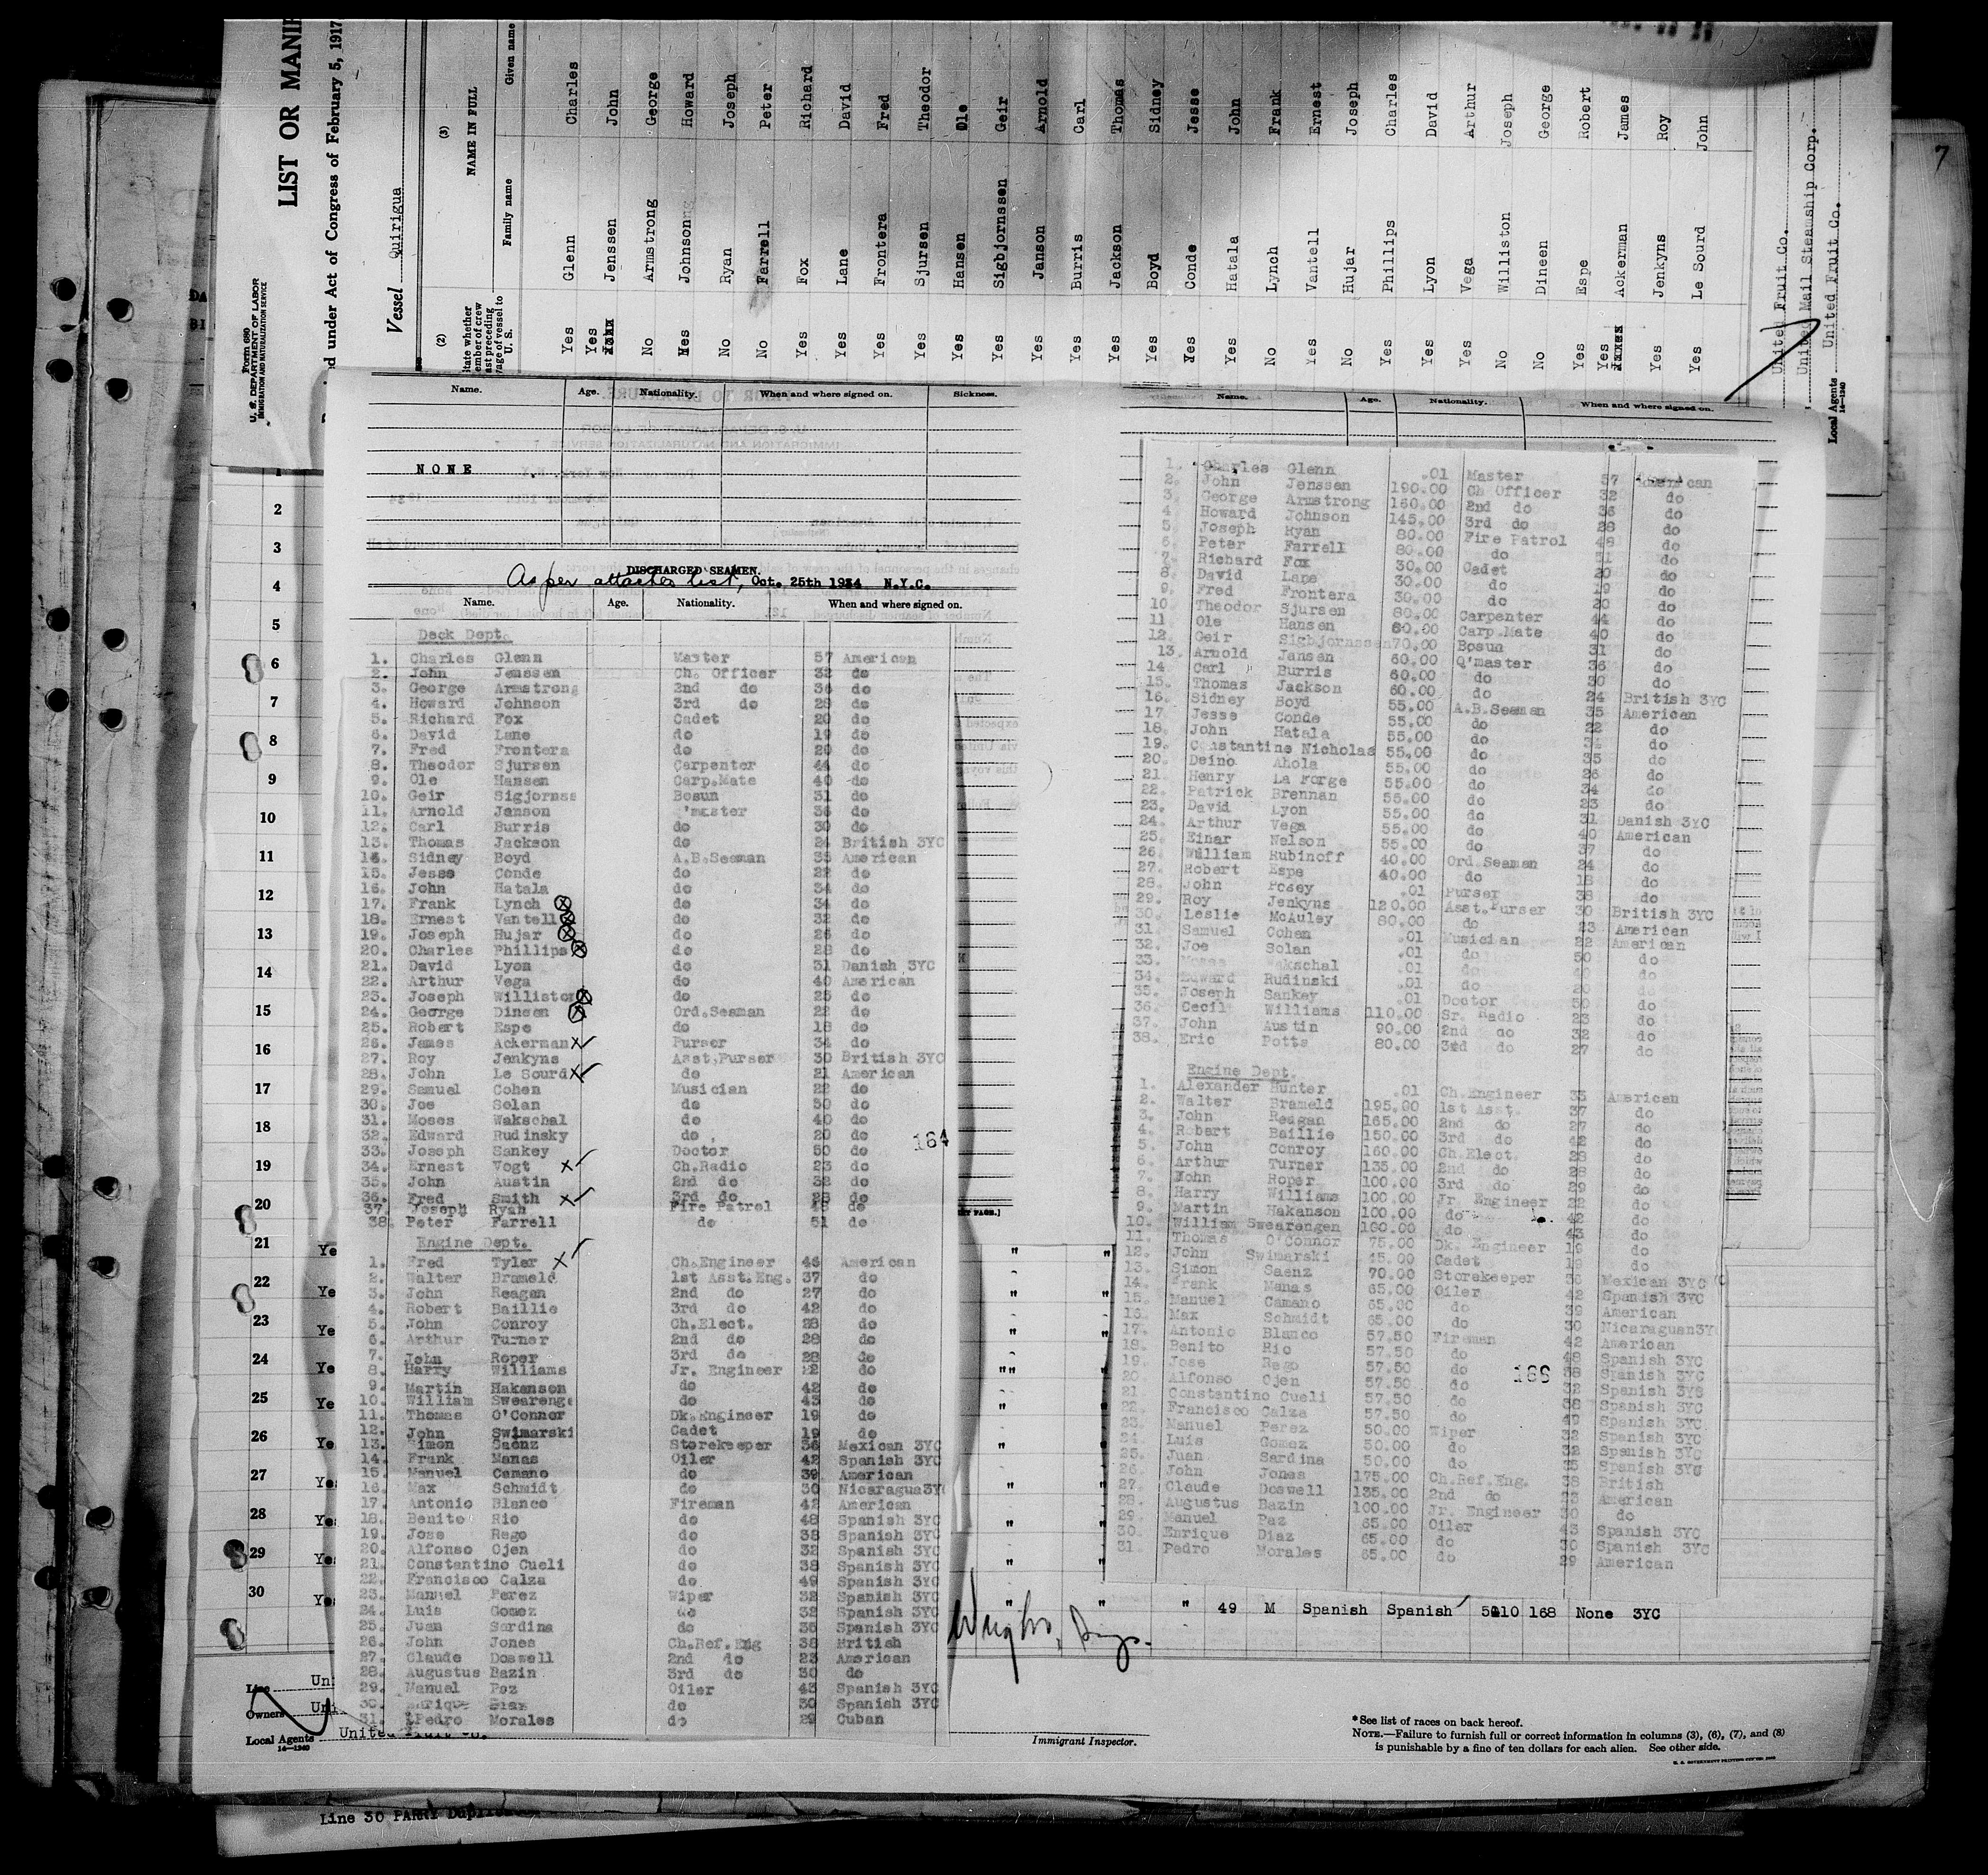 LIST OR MANIF
Form 680
U. S. DEPARTMENT OF LABOR
IMMIGRATION AND NATURALIZATION SERVICE
d under Act of Congress of February 5, 1917
Vessel Quirigua
(2) (3)
NAME IN FULL
Family name Given name
Yes Glenn Charles
Yes Jenssen John
No Armstrong George
Yes Johnson Howard
No Ryan Joseph
No Farrell Peter
Yes Fox Richard
Yes Lane David
Yes Frontera Fred
Yes Sjursen Theodor
Yes Hansen Ole
Yes Sigbjornssen Geir
Yes Janson Arnold
Yes Burris Carl
Yes Jackson Thomas
Yes Boyd Sidney
Yes Conde Jesse
Yes Hatala John
No Lynch Frank
Yes Vantell Ernest
No Hujar Joseph
Yes Phillips Charles
Yes Lyon David
Yes Vega Arthur
No Williston Joseph
No Dineen George
Yes Espe Robert
Yes Ackerman James
Yes Jenkyns Roy
Yes Le Sourd John
United Fruit Co.
United Mail Steamship Corp.
Local Agents United Fruit Co.
14—1240
7
Name. Age. Nationality. When and where signed on. Sickness.
NONE
DISCHARGED SEAMEN.
As per attached list, Oct. 25th 1934 N.Y.C.
Name. Age. Nationality. When and where signed on.
Deck Dept.
1. Charles Glenn Master 57 American
2. John Jenssen Ch. Officer 32 do
3. George Armstrong 2nd do 36 do
4. Howard Johnson 3rd do 28 do
5. Richard Fox Cadet 20 do
6. David Lane do 19 do
7. Fred Frontera do 20 do
8. Theodor Sjursen Carpenter 44 do
9. Ole Hansen Carp.Mate 40 do
10. Geir Sigjornss Bosun 31 do
11. Arnold Janson 'master 36 do
12. Carl Burris do 30 do
13. Thomas Jackson do 24 British 3YC
14. Sidney Boyd A.B.Seaman 35 American
15. Jesse Conde do 22 do
16. John Hatala do 34 do
17. Frank Lynch do 34 do
18. Ernest Vantell do 32 do
19. Joseph Hujar do 26 do
20. Charles Phillips do 28 do
21. David Lyon do 31 Danish 3YC
22. Arthur Vega do 40 American
23. Joseph Williston do 25 do
24. George Dineen Ord.Seaman 22 do
25. Robert Espe do 18 do
26. James Ackerman Purser 34 do
27. Roy Jenkyns Asst,Purser 30 British 3YC
28. John Le Sourd do 21 American
29. Samuel Cohen Musician 22 do
30. Joe Solan do 50 do
31. Moses Wakschal do 40 do
32. Edward Rudinsky do 20 do
33. Joseph Sankey Doctor 50 do
34. Ernest Vogt Ch.Radio 23 do
35. John Austin 2nd do 32 do
36. Fred Smith 3rd do 28 do
37. Joseph Ryan Fire Patrol 48 do
38. Peter Farrell do 51 do
164
Engine Dept.
1. Fred Tyler Ch.Engineer 46 American
2. Walter Brameld 1st Asst.Eng. 37 do
3. John Reagan 2nd do 27 do
4. Robert Baillie 3rd do 42 do
5. John Conroy Ch.Elect. 28 do
6. Arthur Turner 2nd do 28 do
7. John Roper 3rd do 28 do
8. Harry Williams Jr. Engineer 22 do
9. Martin Hakanson do 42 do
10. William Swearenge do 43 do
11. Thomas O'Connor Dk.Engineer 19 do
12. John Swimarski Cadet 19 do
13. Simon Saenz Storekeeper 36 Mexican 3YC
14. Frank Manas Oiler 42 Spanish 3YC
15. Manuel Camano do 39 American
16. Max Schmidt do 30 Nicaragua3YC
17. Antonio Blanco Fireman 42 American
18. Benito Rio do 48 Spanish 3YC
19. Jose Rego do 38 Spanish 3YC
20. Alfonso Ojen do 32 Spanish 3YC
21. Constantino Cueli do 38 Spanish 3YC
22. Francisco Calza do 49 Spanish 3YC
23. Manuel Perez Wiper 32 Spanish 3YC
24. Luis Gomez do 32 Spanish 3YC
25. Juan Sardina do 35 Spanish 3YC
26. John Jones Ch.Ref.Eng 38 British
27. Claude Doswell 2nd do 23 American
28. Augustus Bazin 3rd do 30 do
29. Manuel Paz Oiler 43 Spanish 3YC
30. Enrique Diaz do 30 Spanish 3YC
31. Pedro Morales do 29 Cuban
Name. Age. Nationality. When and where signed on.
1. Charles Glenn .01 Master 57 American
2. John Jenssen 190.00 Ch Officer 32 do
3. George Armstrong 160.00 2nd do 36 do
4. Howard Johnson 145.00 3rd do 28 do
5. Joseph Ryan 80.00 Fire Patrol 48 do
6. Peter Farrell 80.00 do 51 do
7. Richard Fox 30.00 Cadet 20 do
8. David Lane 30.00 do 19 do
9. Fred Frontera 30.00 do 20 do
10. Theodor Sjursen 80.00 Carpenter 44 do
11. Ole Hansen 60.00 Carp.Mate 40 do
12. Geir Sigbjornssen 70.00 Bosun 31 do
13. Arnold Jansen 60.00 Q'master 36 do
14. Carl Burris 60.00 do 30 do
15. Thomas Jackson 60.00 do 24 British 3YC
16. Sidney Boyd 55.00 A.B.Seaman 35 American
17. Jesse Conde 55.00 do 22 do
18. John Hatala 55.00 do do
19. Constantine Nicholas 55.00 do 35 do
20. Deino Ahola 55.00 do 26 do
21. Henry La Forge 55.00 do 34 do
22. Patrick Brennan 55.00 do 23 do
23. David Lyon 55.00 do 31 Danish 3YC
24. Arthur Vega 55.00 do 40 American
25. Einar Nelson 55.00 do 37 do
26. William Rubinoff 40.00 Ord.Seaman 24 do
27. Robert Espe 40.00 do 18 do
28. John Posey .01 Purser 38 do
29. Roy Jenkyns 120.00 Asst.Purser 30 British 3YC
30. Leslie McAuley 80.00 do 23 American
31. Samuel Cohen .01 Musician 22 American
32. Joe Solan .01 do 50 do
33. Moses Wakschal .01 do 40 do
34. Edward Rudinski .01 do 20 do
35. Joseph Sankey .01 Doctor 50 do
36. Cecil Williams 110.00 Sr. Radio 23 do
37. John Austin 90.00 2nd do 32 do
38. Eric Potts 80.00 3rd do 27 do
Engine Dept.
1. Alexander Hunter .01 Ch.Engineer 35 American
2. Walter Brameld 195.00 1st Asst. 37 do
3. John Reagan 165.00 2nd do 27 do
4. Robert Baillie 150.00 3rd do 42 do
5. John Conroy 160.00 Ch.Elect. 28 do
6. Arthur Turner 135.00 2nd do 28 do
7. John Roper 100.00 3rd do 29 do
8. Harry Williams 100.00 Jr. Engineer 22 do
9. Martin Hakanson 100.00 do 42 do
10. William Swearengen 100.00 do 43 do
11. Thomas O'Connor 75.00 Dk. Engineer 19 do
12. John Swimarski 45.00 Cadet 19 do
13. Simon Saenz 70.00 Storekeeper 36 Mexican 3YC
14. Frank Manas 65.00 Oiler 42 Spanish 3YC
15. Manuel Camano 65.00 do 39 American
16. Max Schmidt 65.00 do 30 Nicaraguan3YC
17. Antonio Blanco 57.50 Fireman 42 American
18. Benito Rio 57.50 do 48 Spanish 3YC
19. Jose Rego 57.50 do 38 Spanish 3YC
20. Alfonso Ojen 57.50 do 32 Spanish 3YC
21. Constantino Cueli 57.50 do 38 Spanish 3YC
22. Francisco Calza 57.50 do 49 Spanish 3YC
23. Manuel Perez 50.00 Wiper 32 Spanish 3YC
24. Luis Gomez 50.00 do 32 Spanish 3YC
25. Juan Sardina 50.00 do 35 Spanish 3YC
26. John Jones 175.00 Ch.Ref.Eng. 38 British
27. Claude Doswell 135.00 2nd do 23 American
28. Augustus Bazin 100.00 Jr. Engineer 30 do
29. Manuel Paz 65.00 Oiler 43 Spanish 3YC
30. Enrique Diaz 65.00 do 30 Spanish 3YC
31. Pedro Morales 65.00 do 29 American
166
1
2
3
4
5
6
7
8
9
10
11
12
13
14
15
16
17
18
19
20
21
22
23
24
25
26
27
28
29
30
" " " 49 M Spanish Spanish 5 10 168 None 3YC
Line
Owners
Local Agents United Fruit Co.
14—1240
Immigrant Inspector.
*See list of races on back hereof.
NOTE.—Failure to furnish full or correct information in columns (3), (6), (7), and (8)
is punishable by a fine of ten dollars for each alien. See other side.
Line 30 PARRY